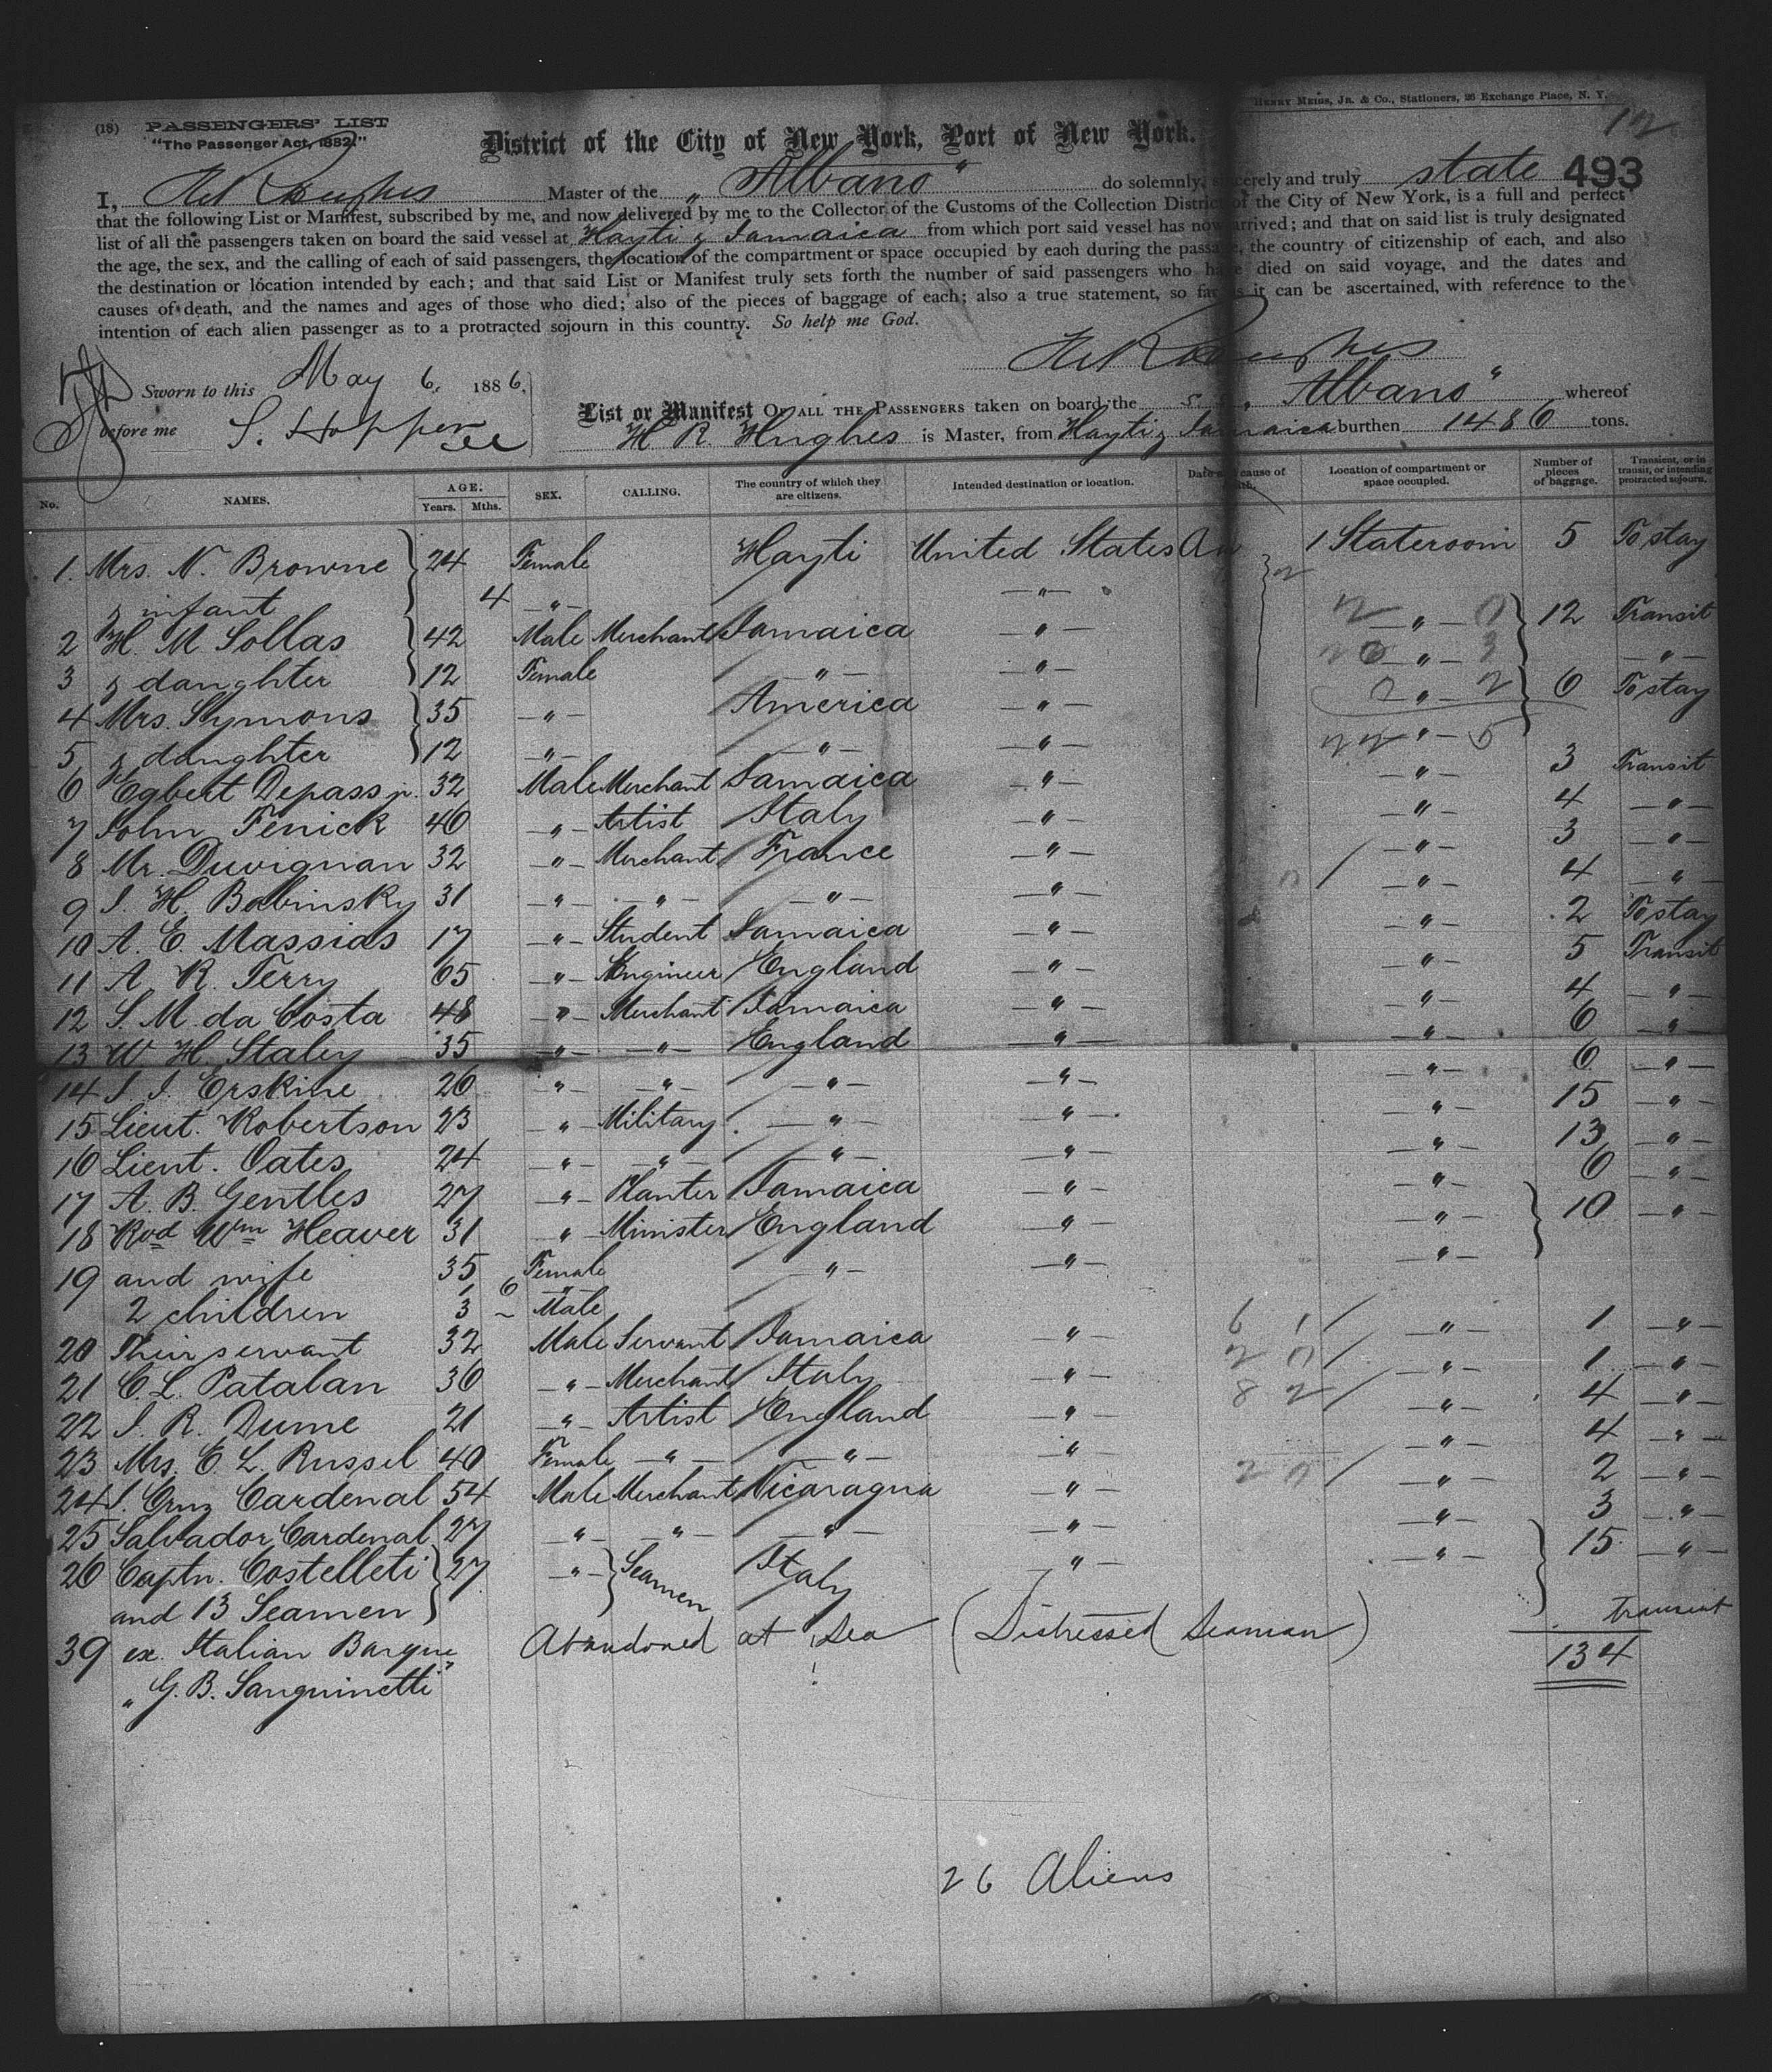 HENRY MEIGS, JR. & CO., Stationers, 26 Exchange Place, N. Y.
12
(18) PASSENGERS' LIST
"The Passenger Act, 1882."
District of the City of New York, Port of New York.
493
I, H R Hughes Master of the "Albano" do solemnly, sincerely and truly state
that the following List or Manifest, subscribed by me, and now delivered by me to the Collector of the Customs of the Collection District of the City of New York, is a full and perfect
list of all the passengers taken on board the said vessel at Hayti & Jamaica from which port said vessel has now arrived; and that on said list is truly designated
the age, the sex, and the calling of each of said passengers, the location of the compartment or space occupied by each during the passage, the country of citizenship of each, and also
the destination or location intended by each; and that said List or Manifest truly sets forth the number of said passengers who have died on said voyage, and the dates and
causes of death, and the names and ages of those who died; also of the pieces of baggage of each; also a true statement, so far as it can be ascertained, with reference to the
intention of each alien passenger as to a protracted sojourn in this country. So help me God.
H R Hughes
Sworn to this May 6, 1886,
before me S. Hopper
List or Manifest OF ALL THE PASSENGERS taken on board the s.s. "Albano" whereof
H R Hughes is Master, from Hayti & Jamaica burthen 1486 tons.
No. NAMES. AGE. Years. Mths. SEX. CALLING. The country of which they are citizens. Intended destination or location. Date and cause of death. Location of compartment or space occupied. Number of pieces of baggage. Transient, or in transit, or intending protracted sojourn.
1. Mrs. N. Browne 24 Female Hayti United States 1 Stateroom 5 To stay
& infant 4 — " — — " —
2 H. M Sollas 42 Male Merchant Jamaica — " — — " — 12 Transit
3 & daughter 12 Female — " — — " — — " — — " —
4 Mrs. Symons 35 — " — America — " — — " — 6 To stay
5 & daughter 12 — " — — " — — " — — " —
6 Egbert Depass jr. 32 Male Merchant Jamaica — " — — " — 3 Transit
7 John Fenick 40 — " — Artist Italy — " — — " — 4 — " —
8 Mr. Duvignan 32 — " — Merchant France — " — — " — 3 — " —
9 J. H. Babinsky 31 — " — — " — — " — — " — — " — 4 — " —
10 A. E. Massias 17 — " — Student Jamaica — " — — " — 2 To stay
11 A. R. Terry 65 — " — Engineer England — " — — " — 5 Transit
12 S. M. da Costa 48 — " — Merchant Jamaica — " — — " — 4 — " —
13 W H. Staley 35 — " — — " — England — " — — " — 6 — " —
14 J. J. Erskine 26 — " — — " — — " — — " — — " — 6 — " —
15 Lieut. Robertson 23 — " — Military — " — — " — — " — 15 — " —
16 Lieut. Oates 24 — " — — " — — " — — " — — " — 13 — " —
17 A. B. Gentles 27 — " — Planter Jamaica — " — — " — 6 — " —
18 Revd Wm Heaver 31 — " — Minister England — " — — " — 10 — " —
19 and wife 35 Female — " — — " — — " —
2 children 1 6 — " —
3 – Male
20 Their servant 32 Male Servant Jamaica — " — — " — 1 — " —
21 C. L. Patalan 30 — " — Merchant Italy — " — — " — 1 — " —
22 J. R. Dume 21 — " — Artist England — " — — " — 4 — " —
23 Mrs. E. L. Russel 40 Female — " — — " — — " — — " — 4 — " —
24 J. Cruz Cardenal 54 Male Merchant Nicaragua — " — — " — 2 — " —
25 Salvador Cardenal 27 — " — — " — — " — — " — — " — 3 — " —
26 Captn. Costelleti 27 — " — Seamen Italy — " — — " — 15 — " —
and 13 Seamen
transient
39 ex. Italian Barque Abandoned at Sea (Distressed Seaman) 134
"G. B. Sanguinetti"
26 Aliens